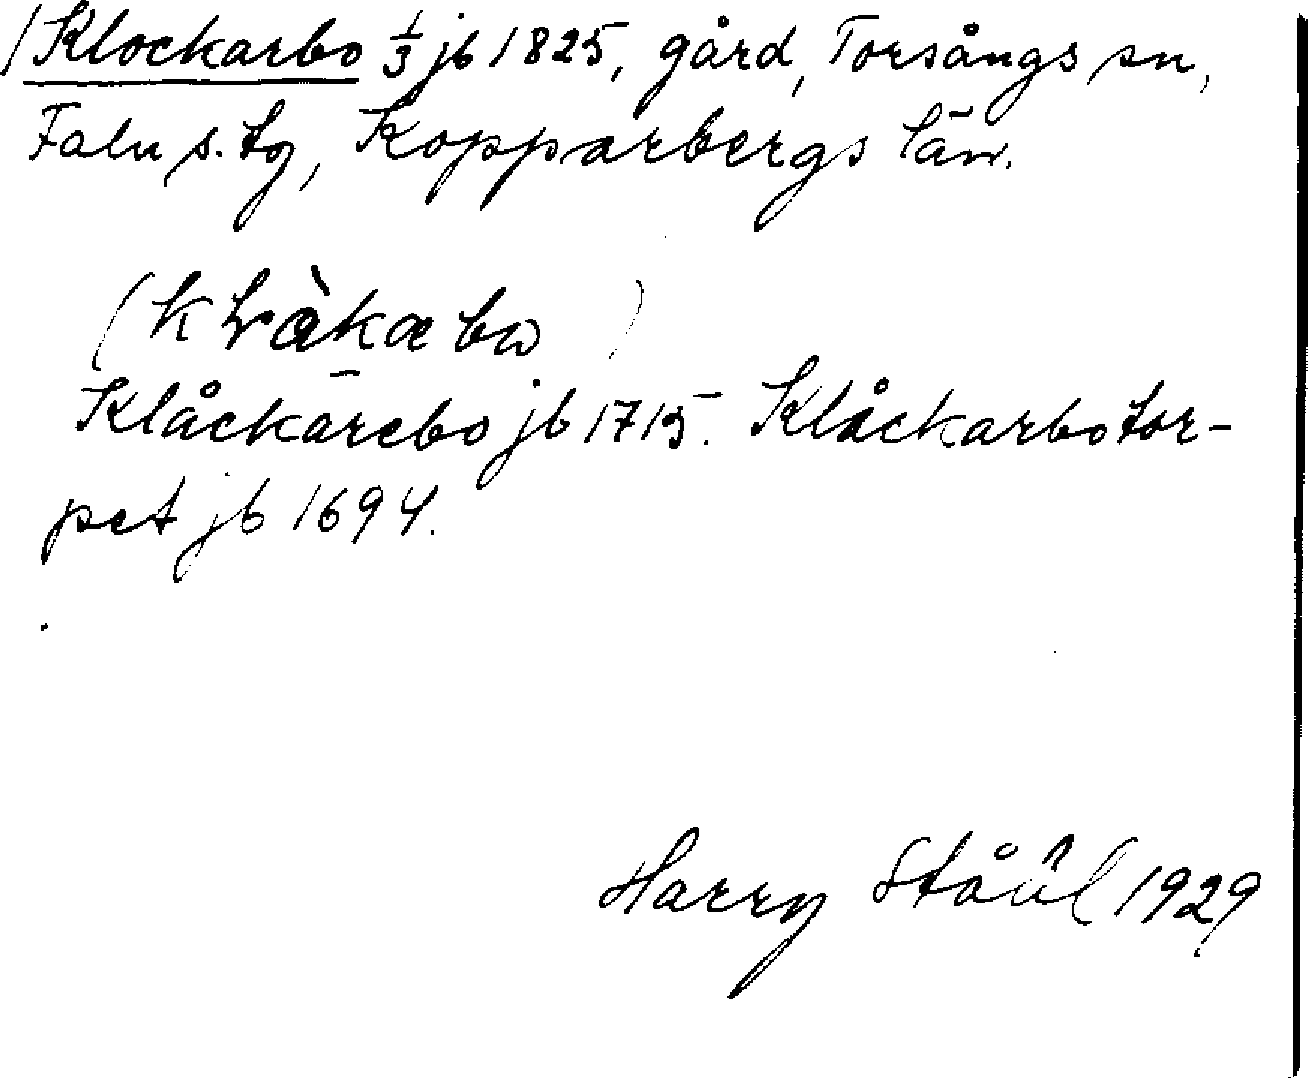 /Klockarbo ⅓ jb 1825, gård, Torsångs sn,
Falu s. tg, Kopparbergs län.
Klåckarebo jb 1715. Klåckarbotor-
pet jb 1694.
Harry Ståhl 1929